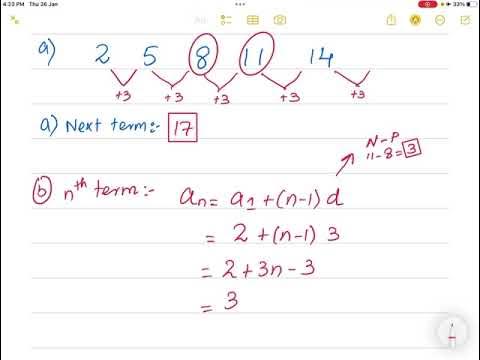 4:23 PM Thu 26 Jan
33%
a) 2 5 8 11 14
+3 +3 +3 +3 +3
a) Next term:- 17
N-P
11-8=3
b) nth term:- an = a1 + (n-1) d
= 2 + (n-1) 3
= 2 + 3n - 3
= 3